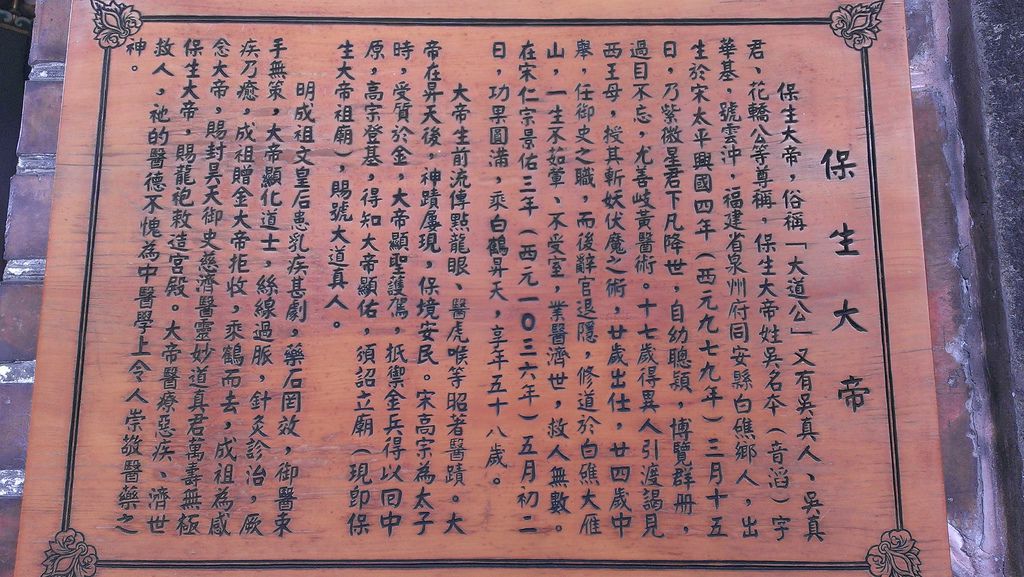 保生大帝
保生大帝，俗稱「大道公」又有吳真人、吳真
君、花轎公等尊稱，保生大帝姓吳名夲（音滔）字
華基，號雲沖，福建省泉州府同安縣白礁鄉人，出
生於宋太平興國四年（西元九七九年）三月十五
日，乃紫微星君下凡降世，自幼聰穎，博覽群冊，
過目不忘，尤善岐黃醫術。十七歲得異人引渡謁見
西王母，授其斬妖伏魔之術，廿歲出仕，廿四歲中
舉，任御史之職，而後辭官退隱，修道於白礁大雁
山，一生不茹葷、不受室，業醫濟世，救人無數。
在宋仁宗景佑三年（西元一０三六年）五月初二
日，功果圓滿，乘白鶴昇天，享年五十八歲。
大帝生前流傳點龍眼、醫虎喉等昭著醫蹟。大
帝在昇天後，神蹟屢現，保境安民。宋高宗為太子
時，受質於金，大帝顯聖護駕，抵禦金兵得以回中
原，高宗登基，得知大帝顯佑，須詔立廟（現即保
生大帝祖廟），賜號大道真人。
明成祖文皇后患乳疾甚劇，藥石罔效，御醫束
手無策，大帝顯化道士，絲線過脈，針灸診治，厥
疾乃癒，成祖贈金大帝拒收，乘鶴而去，成祖為感
念大帝，賜封昊天御史慈濟醫靈妙道真君萬壽無極
保生大帝，賜龍袍敕造宮殿。大帝醫療惡疾、濟世
救人，祂的醫德不愧為中醫學上令人崇敬醫藥之
神。